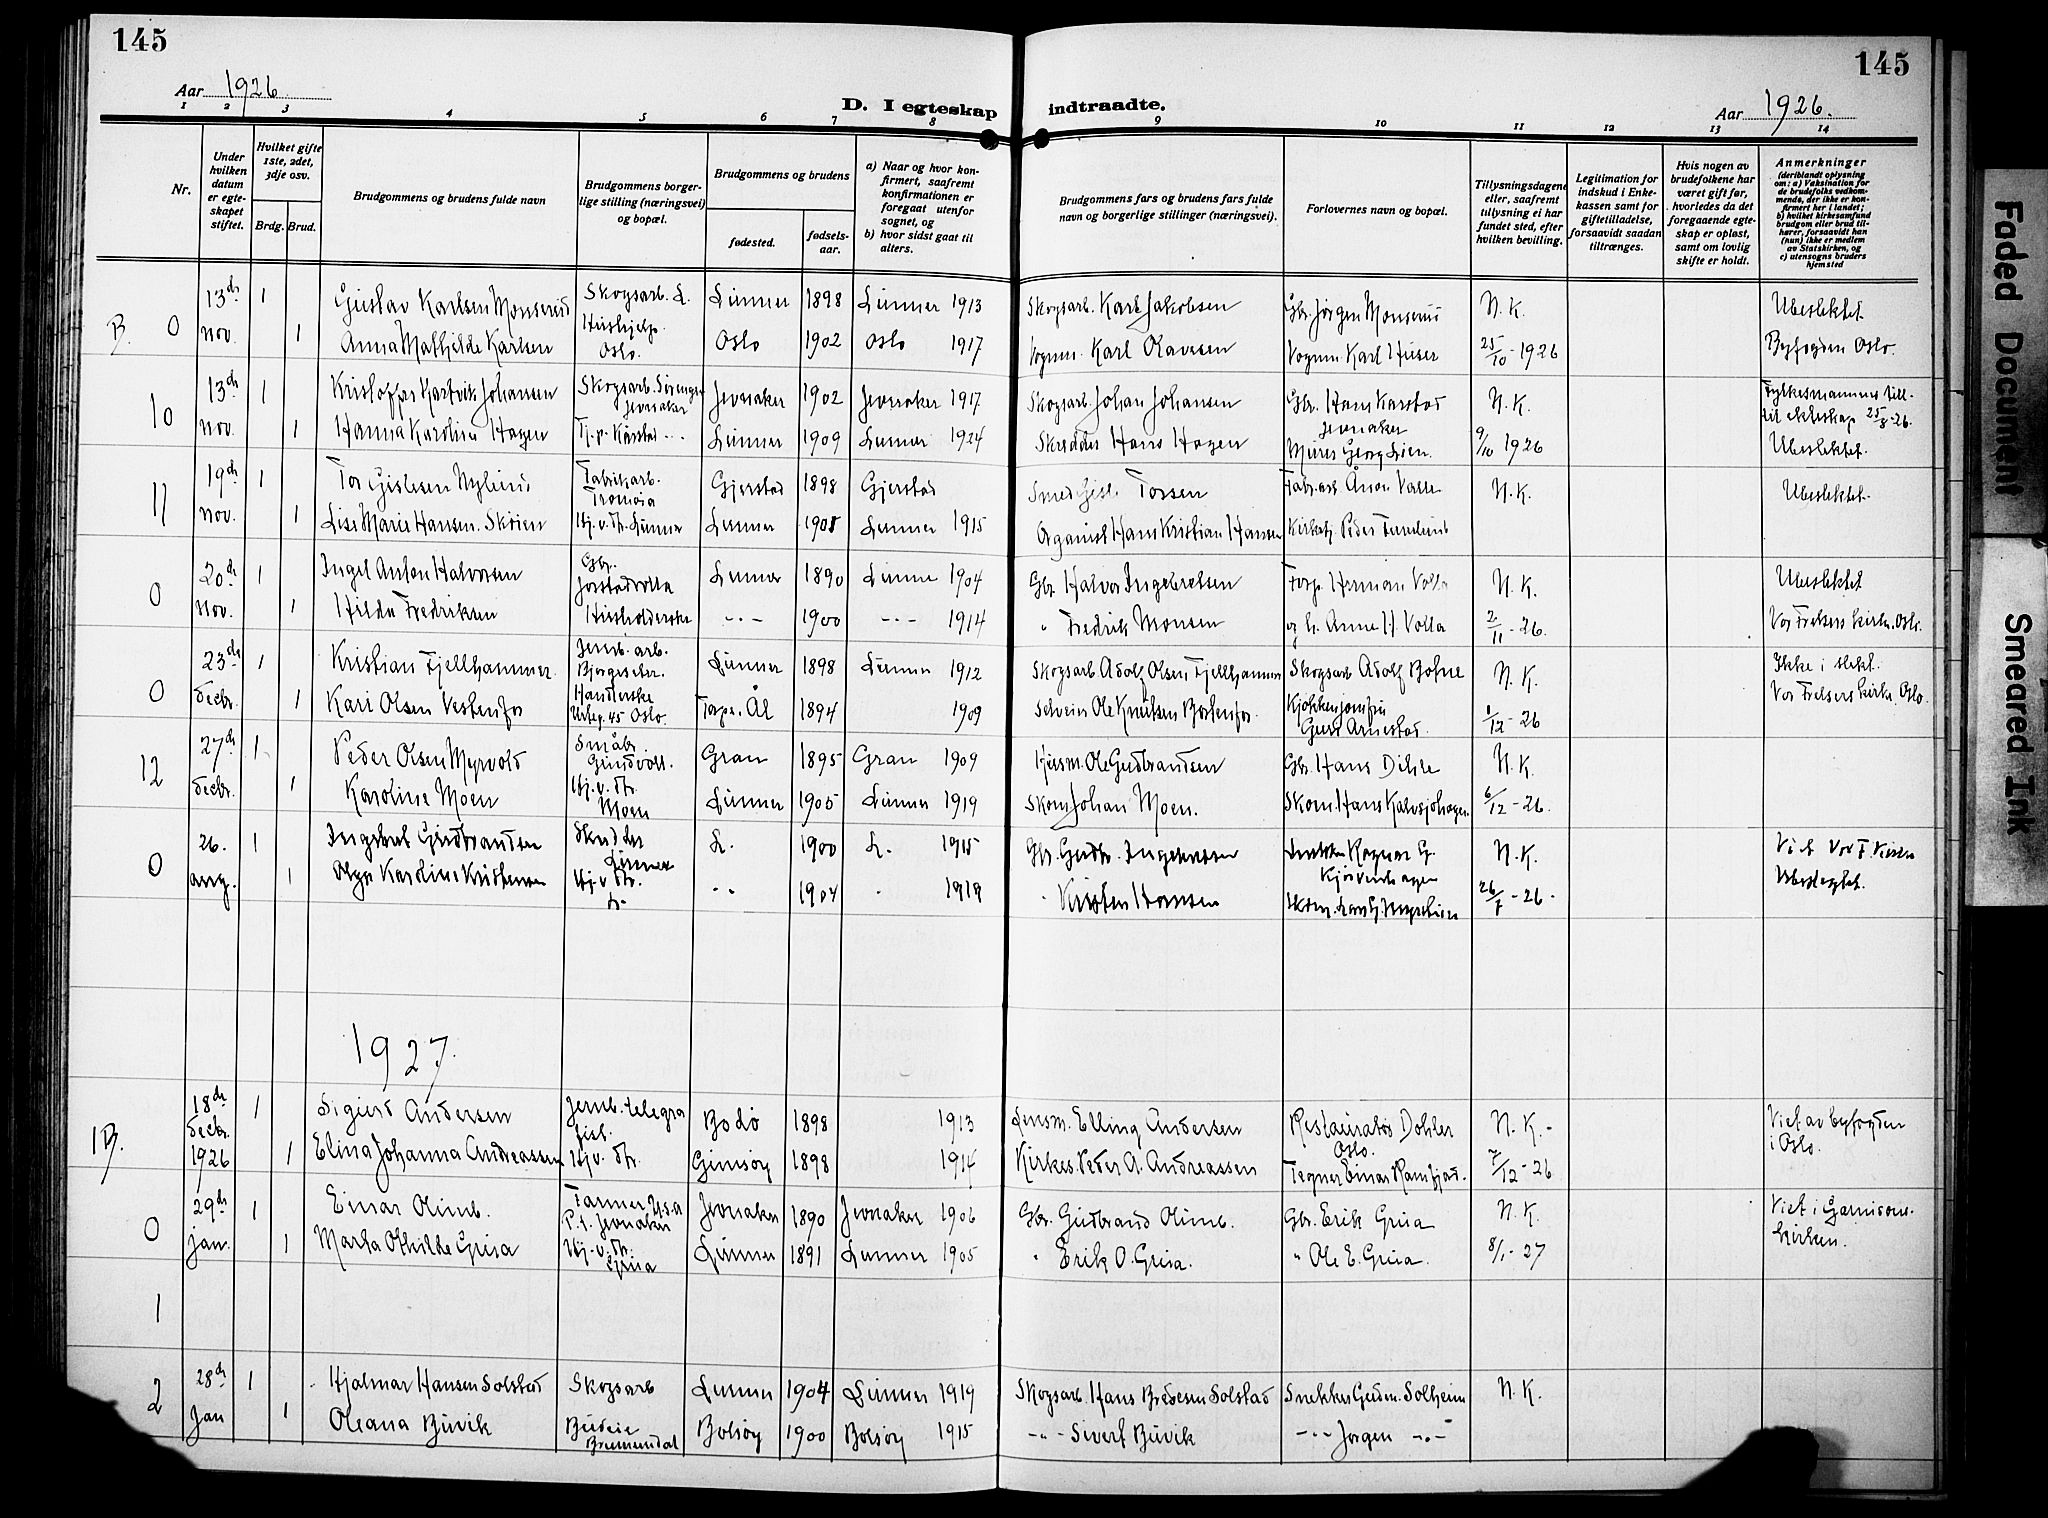 145
145
Aar 1926.
D. I egteskap indtraadte.
Aar 1926.
1 2 3 4 5 6 7 8 9 10 11 12 13 14
Nr.
Under hvilken datum er egteskapet stiftet.
Hvilket gifte 1ste, 2det, 3dje osv.
Brdg. Brud.
Brudgommens og brudens fulde navn
Brudgommens borgerlige stilling (næringsvei) og bopæl.
Brudgommens og brudens
fødested.
fødselsaar.
a) Naar og hvor konfirmert, saafremt konfirmationen er foregaat utenfor sognet, og
b) hvor sidst gaat til alters.
Brudgommens fars og brudens fars fulde navn og borgerlige stillinger (næringsvei).
Forlovernes navn og bopæl.
Tillysningsdagene eller, saafremt tillysning ei har fundet sted, efter hvilken bevilling.
Legitimation for indskud i Enkekassen samt for giftetilladelse, forsaavidt saadan tiltrænges.
Hvis nogen av brudefolkene har været gift før, hvorledes da det foregaaende egteskap er opløst, samt om lovlig skifte er holdt.
Anmerkninger (deriblandt oplysning om: a) Vaksination for de brudefolks vedkommende, der ikke er konfirmert her i landet; b) hvilket kirkesamfund brudgom eller brud tilhører, forsaavidt han (hun) ikke er medlem av Statskirken, og c) utensogns bruders hjemsted
B. 0 13de 1 Gustav Karlsen Monserud Skogsarb. L. Lunner 1898 Lunner 1913 Skogsarb. Karl Jakobsen Gbr. Jørgen Monserud N.K. Ubeslektet
nov. 1 Anna Mathilde Karlsen Hushjelp. Oslo. Oslo 1902 Oslo 1917 Vognm. Karl Olavesen Vognm. Karl Huser 25/10-1926 Byfogden Oslo.
10 13de 1 Kristoffer Hartvik Johansen Skogsarb. Jevnaker Jevnaker 1902 Jevnaker 1917 Skogsarb. Johan Johansen Gbr. Hans Karstad Jevnaker N.K. Fylkesmannens till. til ekteskap 25/8-26.
nov. 1 Hanna Karoline Hagen Tj.p. Kårstad Lunner 1909 Lunner 1924 Skredder Hans Hagen Murer Georg Lien. 9/10 1926 Ubeslektet.
11 19de 1 Tor Gislesen Nylund Fabrikarb. Tromøia Gjerstad 1898 Gjerstad Smed Torsen Fabr.arb. Valle N.K. Ubeslektet
nov. 1 Lise Marie Hansen Skøien Hj.v.Str. Lunner Lunner Lunner 1915 Organist Hans Kristian Hansen Kirketj. Peder
0 20de 1 Ingel Anton Halvorsen Gbr. Lunner 1890 Lunner 1904 Gbr. Halvor Ingebretsen Forp. Herman Volla N.K. Ubeslektet
nov. 1 Hilda Fredriksen Husholderske -"- 1900 -"- 1914 " Fredrik Monsen og h. Anne H. Volla 2/11-26. Vor Frelsers kirke, Oslo.
0 23de 1 Kristian Fjellhammer. Jernb.arb. Lunner 1898 Lunner 1912 Skogsarb. Adolf Olsen Fjellhammer Skogsarb. Adolf N.K. Ikke i slekt.
decbr. 1 Kari Olsen Oslo. Torpe. Ål 1894 1909 Ole Knutsen Kjøkkenjomfru 1/12-26 Vor Frelsers kirke, Oslo.
12 27de 1 Peder Olsen Myrvold Småbr. Grindvoll. Gran 1895 Gran 1909 Husm. Ole Gudbrandsen Gbr. Hans Dihle N.K.
decbr. 1 Karoline Moen Hj.v.Str. Moen Lunner 1905 Lunner 1919 Skom. Johan Moen. Skom. Hans Kalvsjøhagen 6/12-26.
0 26. 1 Gudbrandsen Lunner L. 1900 L. 1915 Gbr. Gudbr. Ingebretsen Ragnar G. N.K. Viet Vor F. Kirke
aug. 1 Olga Karoline Kristensen Hj.v.Str. L. -"- 1904 " 1919 " Kristen Hansen 26/7-26. Ubeslegtet.
1927.
1B. 18de decbr. 1926 1 Sigurd Andersen Jernb. telegrafist. Bodø 1898 1913 Lensm. Elling Andersen Restauratør Dohler Oslo. N.K.- Viet av byfogden i Oslo.
1 Elina Johanna Andreassen Hj.v.Str. Gimsøy 1898 1914 Kirkes. Peder A. Andreassen Tegner Einar Ramfjord. 7/12-26
0 29de 1 Einar Olimb. Farmer Usa P.t. Jevnaker Jevnaker 1890 Jevnaker 1906 Gbr. Gudbrand Olimb. Gbr. Erik Grua N.K. Viet i Garnisonskirken.
jan. 1 Marta Othilde Grua Hj.v.Str. Grua Lunner 1891 Lunner 1905 " Erik O. Grua. " Ole E. Grua. 8/1-27
1
2 28de 1 Hjalmar Hansen Solstad Skogsarb Lunner 1904 Lunner 1919 Skogsarb. Hans Bredesen Solstad Snekker Gudm. Solheim N.K.
Jan 1 Oleana Buvik Budeie Bolsøy 1900 Bolsøy 1915 -"- Sivert Buvik -"- Jørgen -"-
Faded Document
Smeared Ink